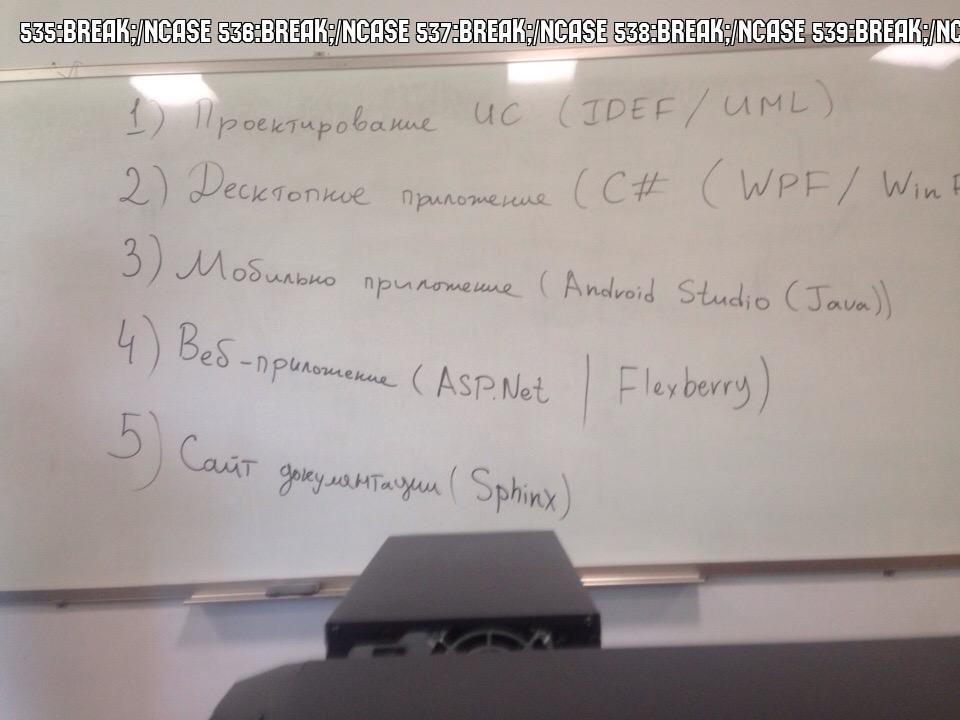 535:BREAK;/NCASE 536:BREAK;/NCASE 537:BREAK;/NCASE 538:BREAK;/NCASE 539:BREAK;/NC
1) Проектирование ИС (IDEF / UML)
2) Десктопное приложение (C# ( WPF / Win F
3) Мобильно приложение (Android Studio (Java))
4) Веб-приложение (ASP.Net | Flexberry)
5) Сайт документации (Sphinx)